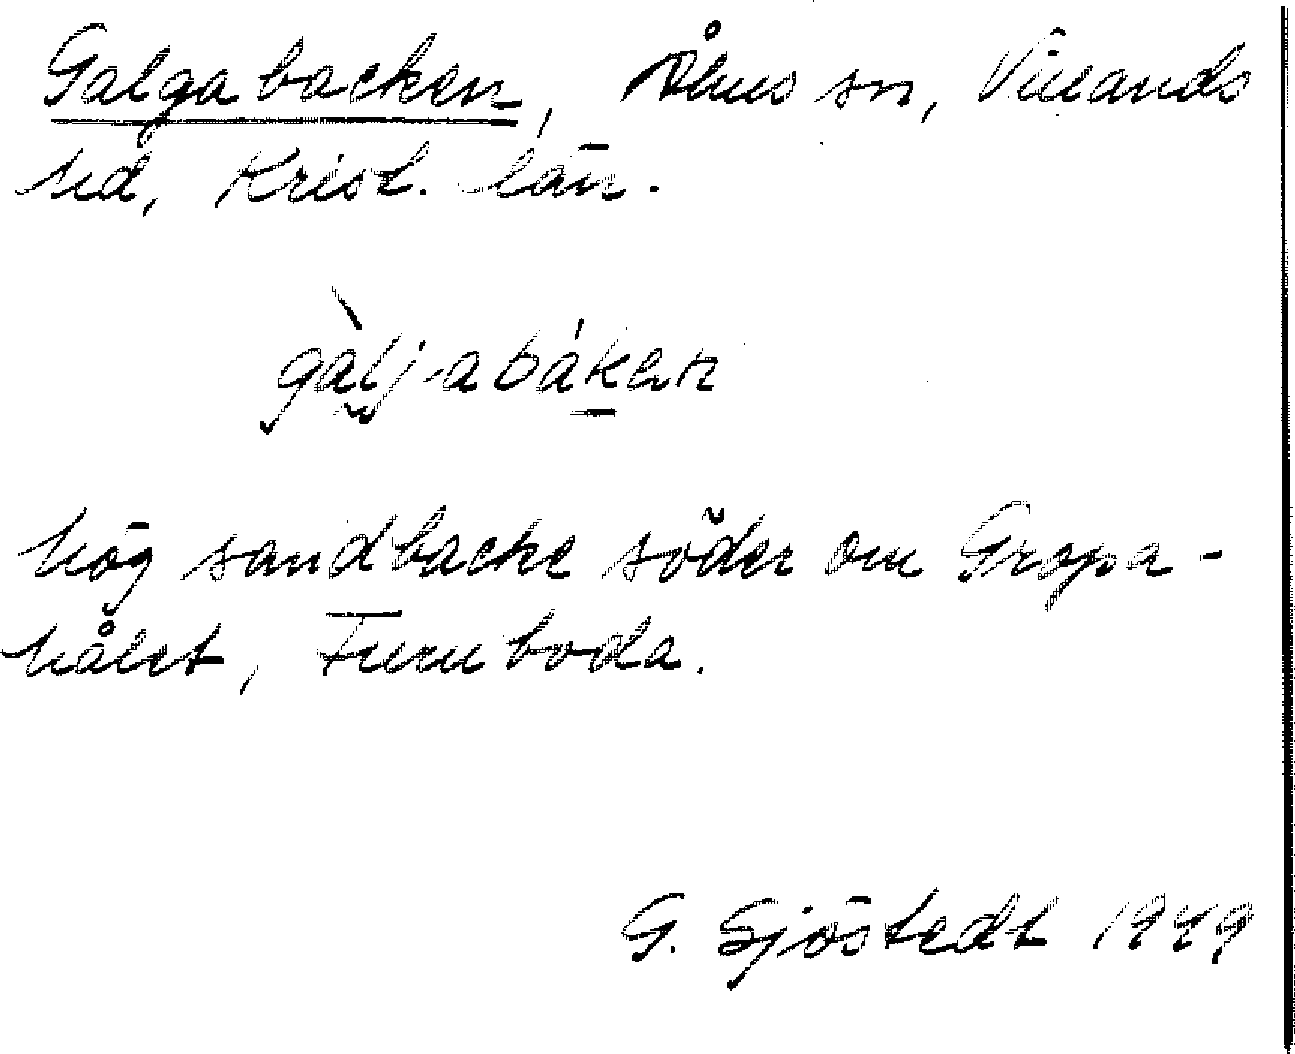 Galgabacken, Åhus sn, Villands
hd, Krist. län.
gàlj-abáken
hög sandbacke söder om Gropa-
hålet, Furuboda.
G. Sjöstedt 1949